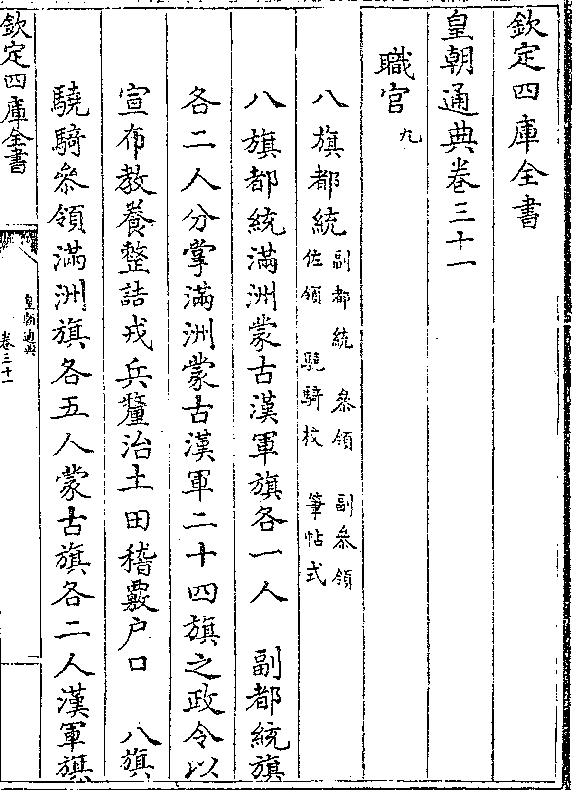 欽定四庫全書
皇朝通典卷三十一
職官九
八旗都統副都統 叅領 副叅領
佐領 驍騎校 筆帖式
八旗都統滿洲蒙古漢軍旗各一人 副都統旗
各二人分掌滿洲蒙古漢軍二十四旗之政令以
宣布教養整詰戎兵釐治土田稽覈户口 八旗
驍騎叅領滿洲旗各五人蒙古旗各二人漢軍旗
欽定四庫全書
皇朝通典
卷三十一